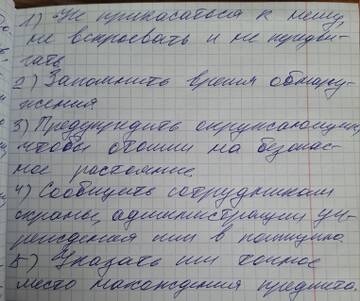 1) Не прикасаться к нему,
не вскрывать и не передви-
гать
2) Запомнить время обнару-
жения
3) Предупредить окружающих,
чтобы отошли на безопас-
ное растояние.
4) Сообщить сотрудникам
охраны, администрации уч-
реждения или в полицию.
5) Указать им точное
место нахождения предмета.